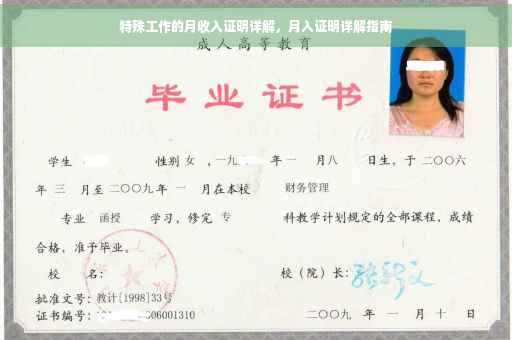 特殊工作的月收入证明详解，月入证明详解指南
成人高等教育
毕业证书
学生 性别 女 ，一九 年 一 月 八 日生，于 二〇〇六
年 三 月至 二〇〇九 年 一 月在本校 财务管理
专业 函授 学习，修完 专 科教学计划规定的全部课程，成绩
合格，准予毕业。
校 名： 校（院）长：
批准文号：教计[1998]33号
证书编号： 06001310 二〇〇九 年 一 月 十 日